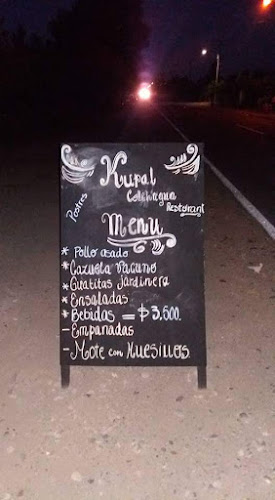 Kupal
Colchagua
Restorant
Postres
Menu
* Pollo asado
* Cazuela Vacuno
* Guatitas Jardinera
* Ensaladas
* Bebidas = $3.600.
- Empanadas
- Mote con Huesillos